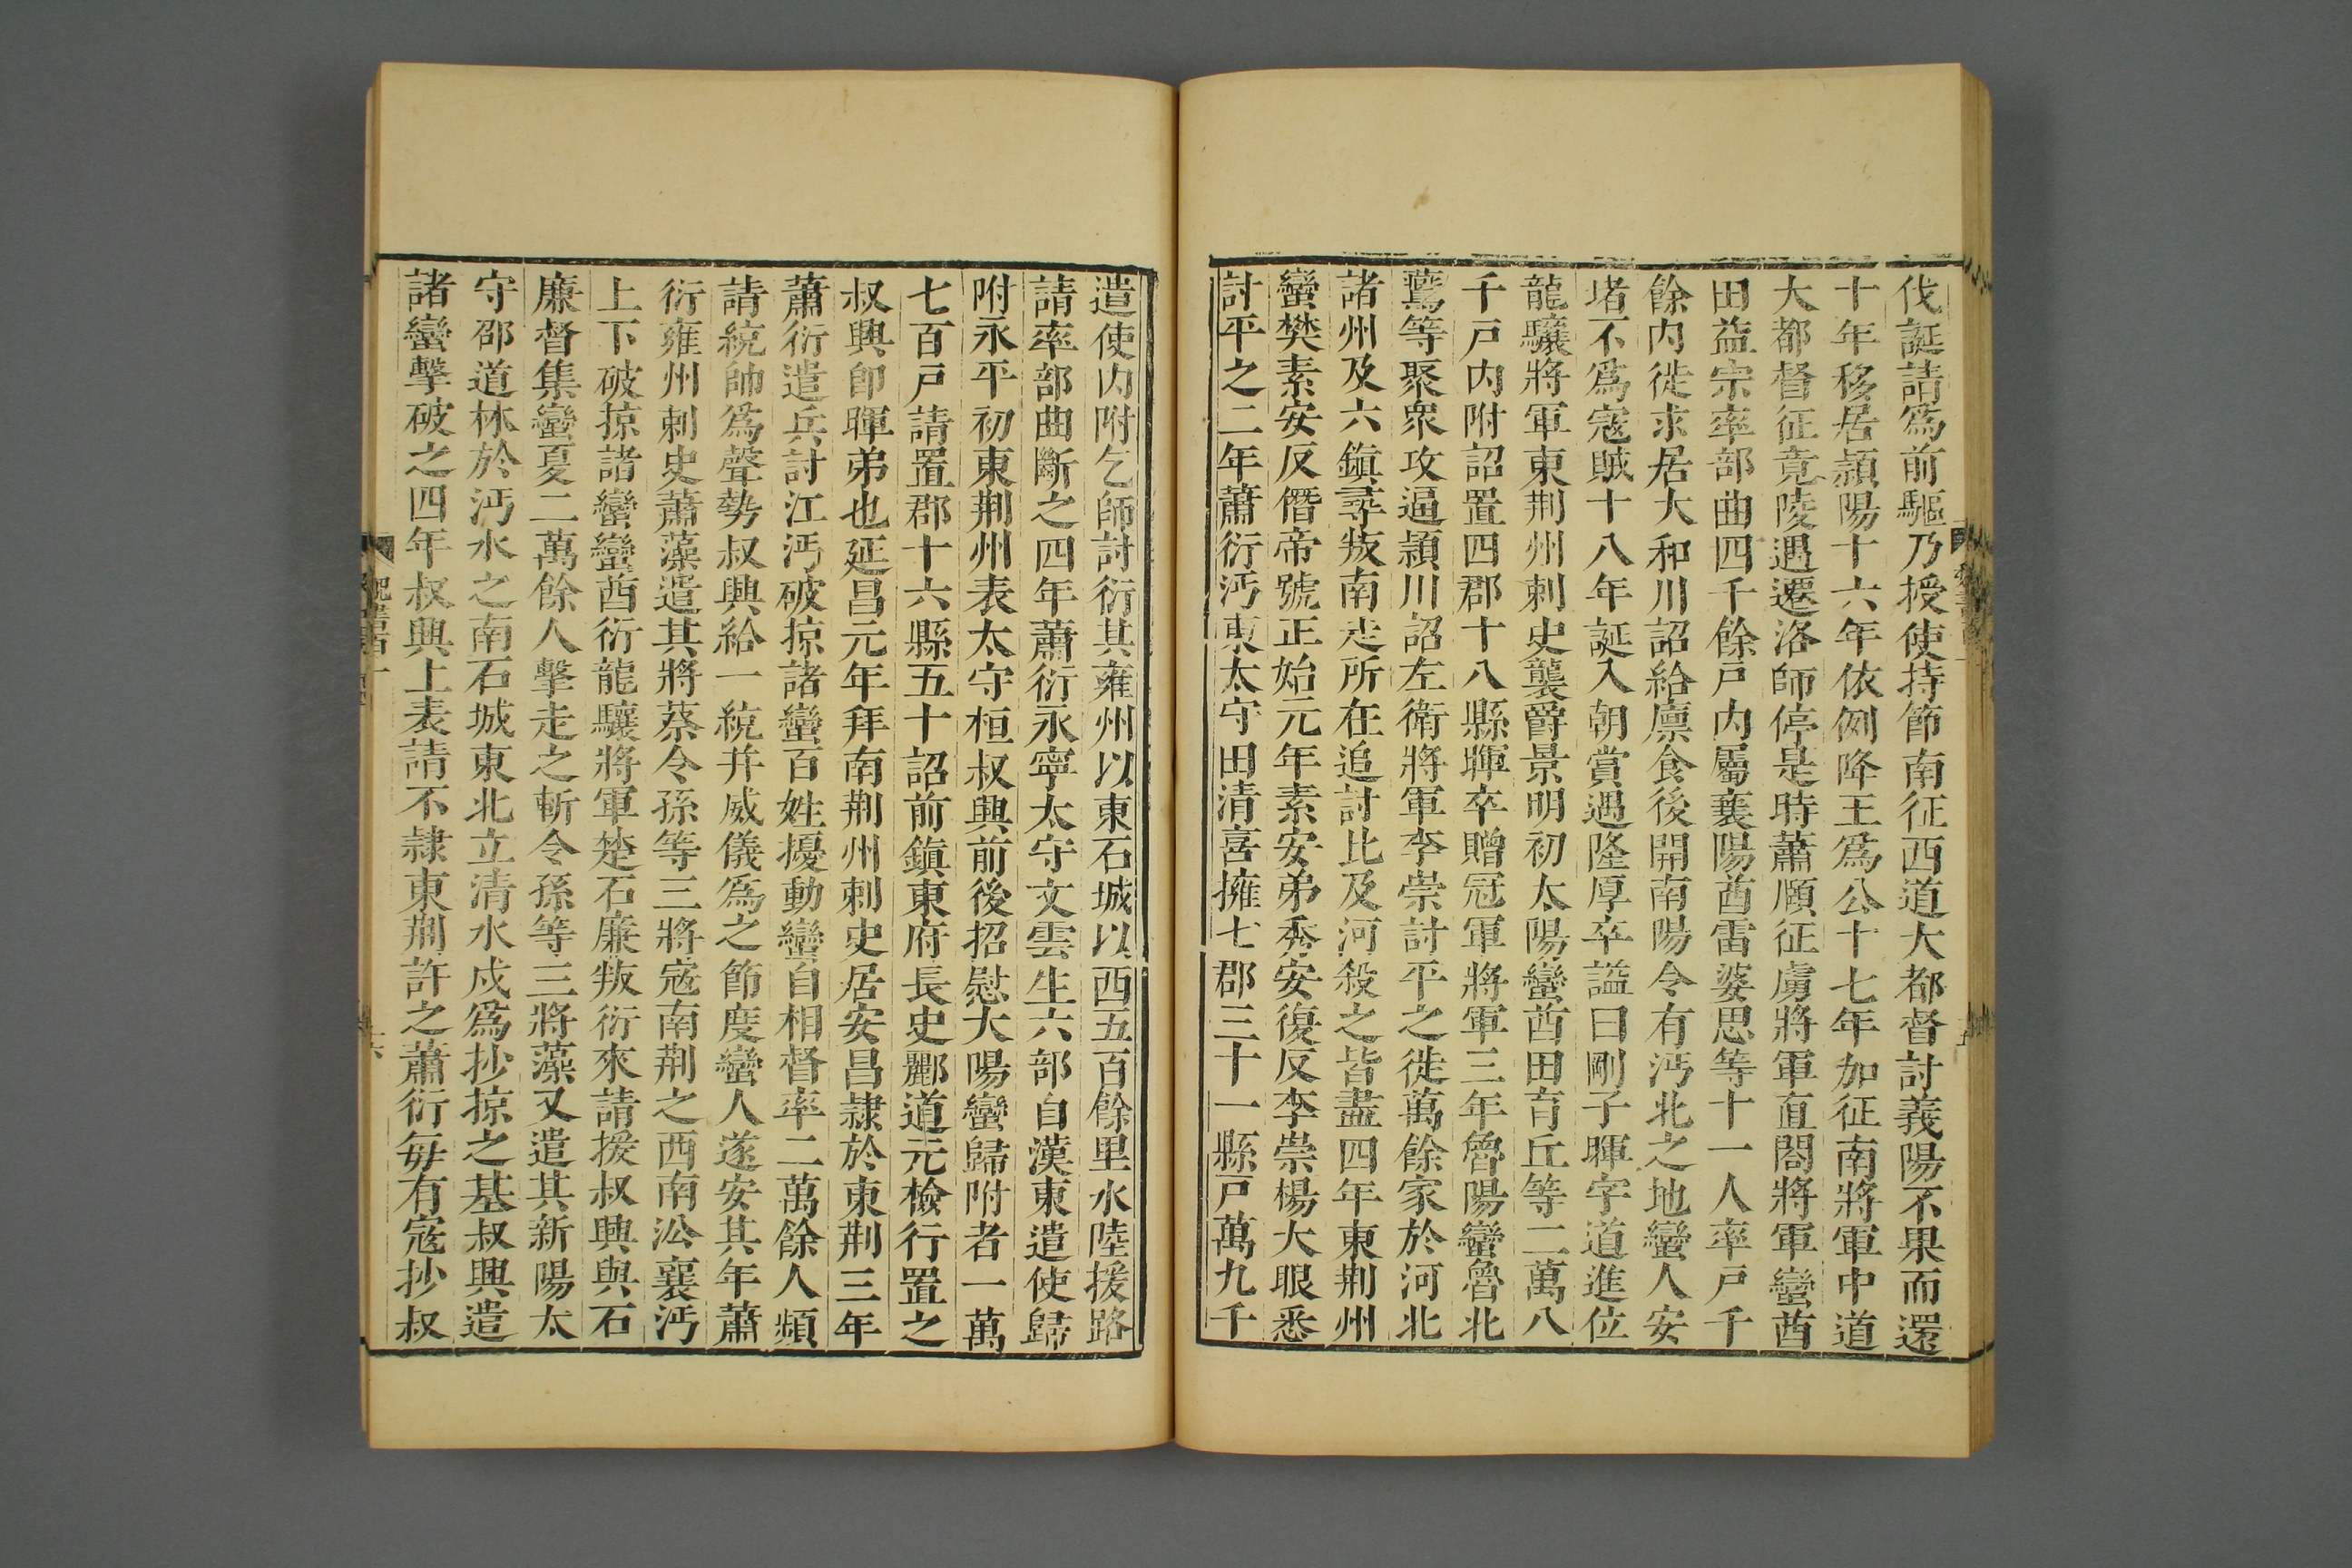 伐誕請爲前驅乃授使持節南征西道大都督討義陽不果而還
十年移居潁陽十六年依例降王爲公十七年加征南將軍中道
大都督征竟陵遇遷洛師停是時蕭賾征虜將軍直閤將軍蠻酋
田益宗率部曲四千餘戶內屬襄陽酋雷婆思等十一人率戶千
餘內徙求居大和川詔給廪食後開南陽令有沔北之地蠻人安
堵不爲寇賊十八年誕入朝賞遇隆厚卒謚曰剛子暉字道進位
龍驤將軍東荆州刺史襲爵景明初太陽蠻酋田育丘等二萬八
千戶內附詔置四郡十八縣暉卒贈冠軍將軍三年魯陽蠻魯北
鷰等聚衆攻逼潁川詔左衛將軍李崇討平之徙萬餘家於河北
諸州及六鎮尋叛南走所在追討比及河殺之皆盡四年東荆州
蠻樊素安反僭帝號正始元年素安弟秀安復反李崇楊大眼悉
討平之二年蕭衍沔東太守田清喜擁七郡三十一縣戶萬九千
遣使內附乞師討衍其雍州以東石城以西五百餘里水陸援路
請率部曲斷之四年蕭衍永寧太守文雲生六部自漢東遣使歸
附永平初東荆州表太守桓叔興前後招慰大陽蠻歸附者一萬
七百戶請置郡十六縣五十詔前鎮東府長史酈道元檢行置之
叔興卽暉弟也延昌元年拜南荆州刺史居安昌隷於東荆三年
蕭衍遣兵討江沔破掠諸蠻百姓擾動蠻自相督率二萬餘人頻
請統帥爲聲勢叔興給一統并威儀爲之節度蠻人遂安其年蕭
衍雍州刺史蕭藻遣其將蔡令孫等三將寇南荆之西南沿襄沔
上下破掠諸蠻蠻酋衍龍驤將軍楚石廉叛衍來請援叔興與石
廉督集蠻夏二萬餘人擊走之斬令孫等三將藻又遣其新陽太
守邵道林於沔水之南石城東北立清水戍爲抄掠之基叔興遣
諸蠻擊破之四年叔興上表請不隷東荆許之蕭衍每有寇抄叔